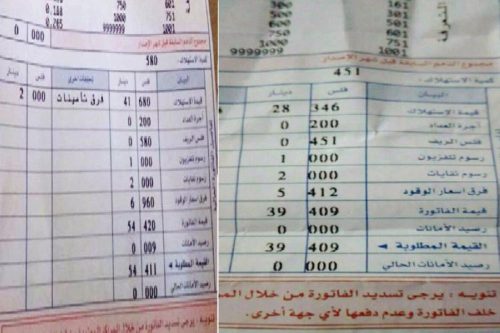 0.188 750 601
0.265 1000 751
9999999 1001
مجموع الدعم السابقة قبل شهر الإصدار
0 000
كمية الاستهلاك : 580
البيان فلس دينار تحققات أخرى فلس دينار
قيمة الاستهلاك 680 41 فرق تأمينات 000 2
أجرة العداد 200 0
فلس الريف 580 0
رسوم تلفزيون 000 1
رسوم نفايات 000 2
فرق اسعار الوقود 960 6
قيمة الفاتورة 420 54
رصيد الأمانات 009 0
القيمة المطلوبة 411 54
رصيد الأمانات الحالي 000 0
تنويه : يرجى تسديد الفاتورة من خلال
خلف الفاتورة وعدم دفعها
300 161
500 301
600 501
750 601
1000 751
9999999
الشرق
مجموع الدعم السابقة قبل شهر الإصدار
كمية الاستهلاك : 451
البيان فلس دينار
قيمة الاستهلاك 346 28
أجرة العداد 200 0
فلس الريف 451 0
رسوم تلفزيون 000 1
رسوم نفايات 000 2
فرق اسعار الوقود 412 5
قيمة الفاتورة 409 39
رصيد الأمانات 000 0
القيمة المطلوبة 409 39
رصيد الأمانات الحالي 000 0
تنويه : يرجى تسديد الفاتورة من خلال
خلف الفاتورة وعدم دفعها لأي جهة أخرى.